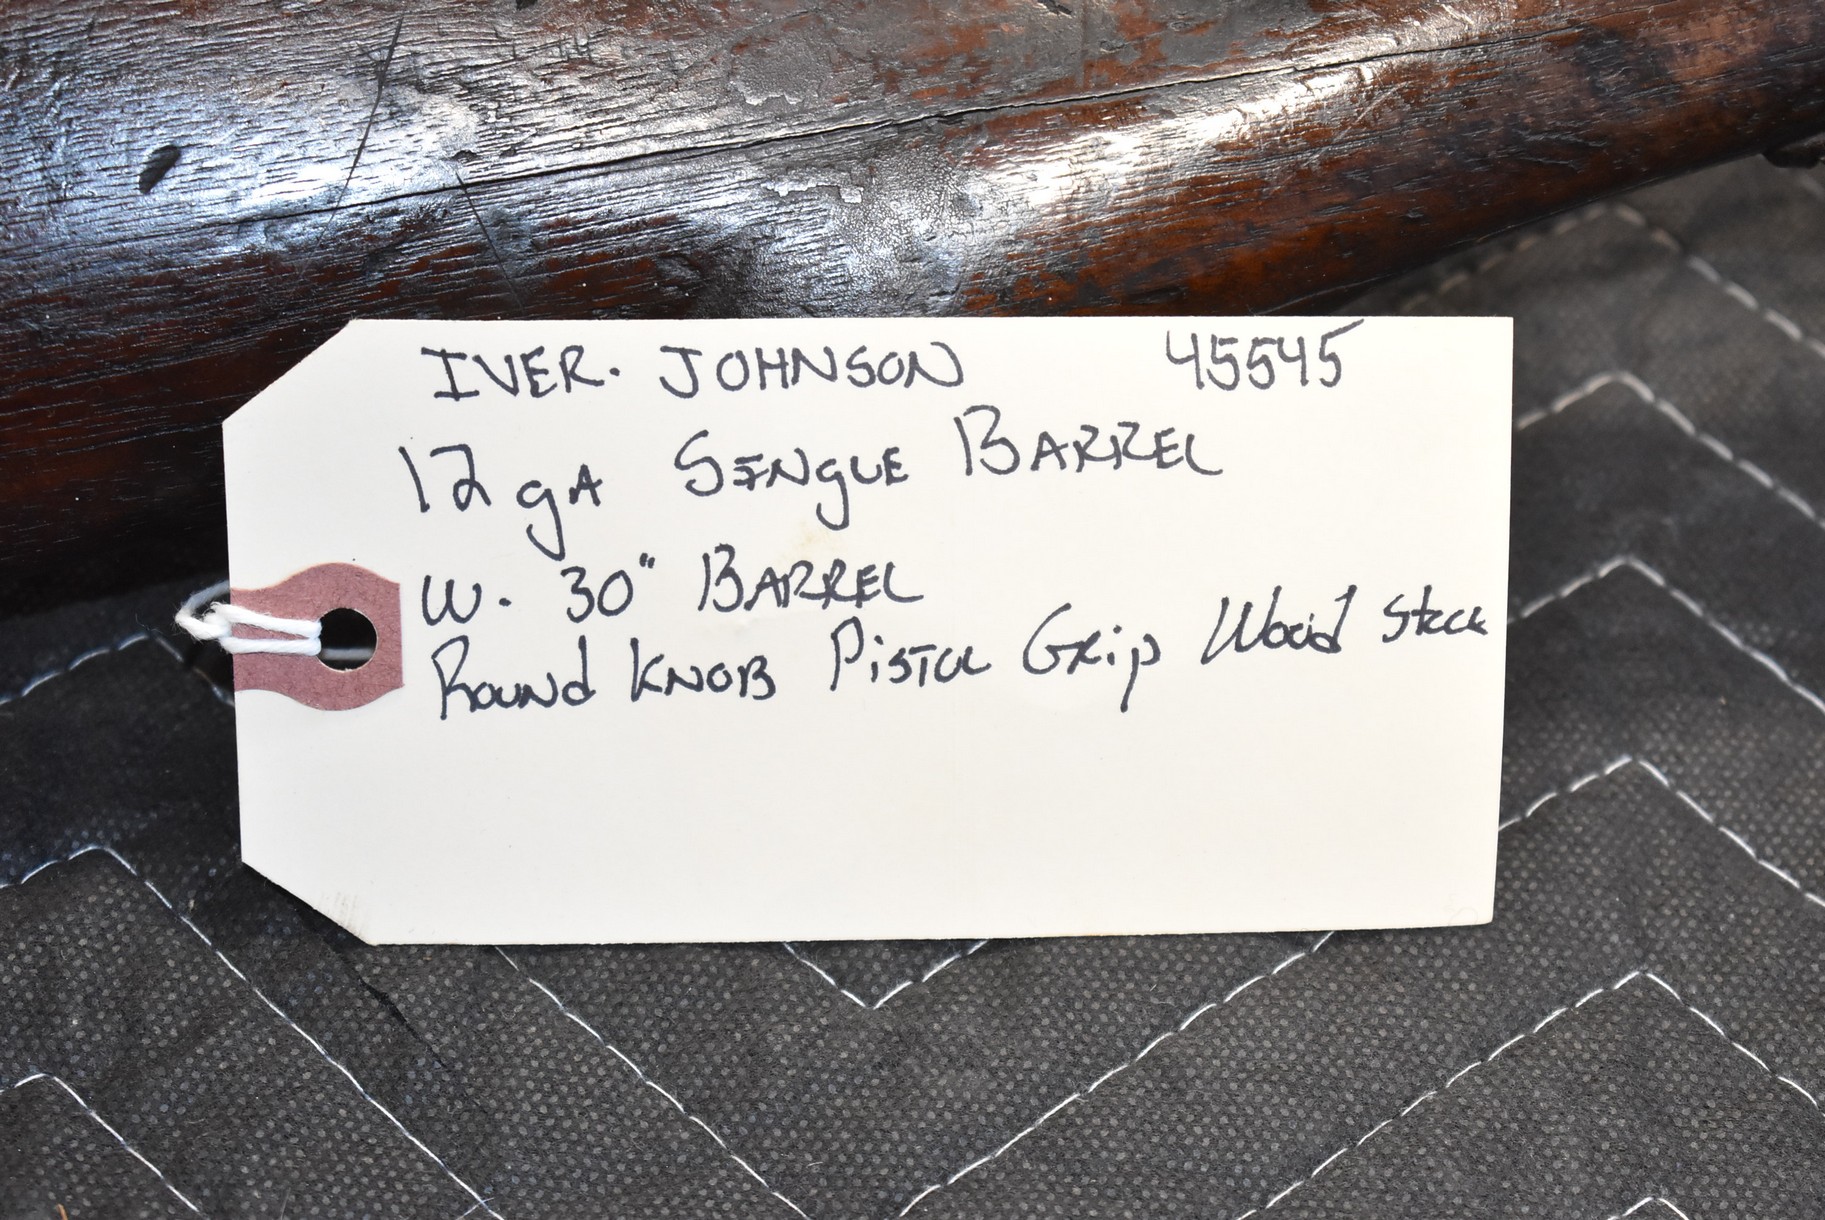 IVER. JOHNSON 45545
12 gA SINgLE BARREL
W. 30" BARREL
Round KNOB PISTOL Grip Wood Stock